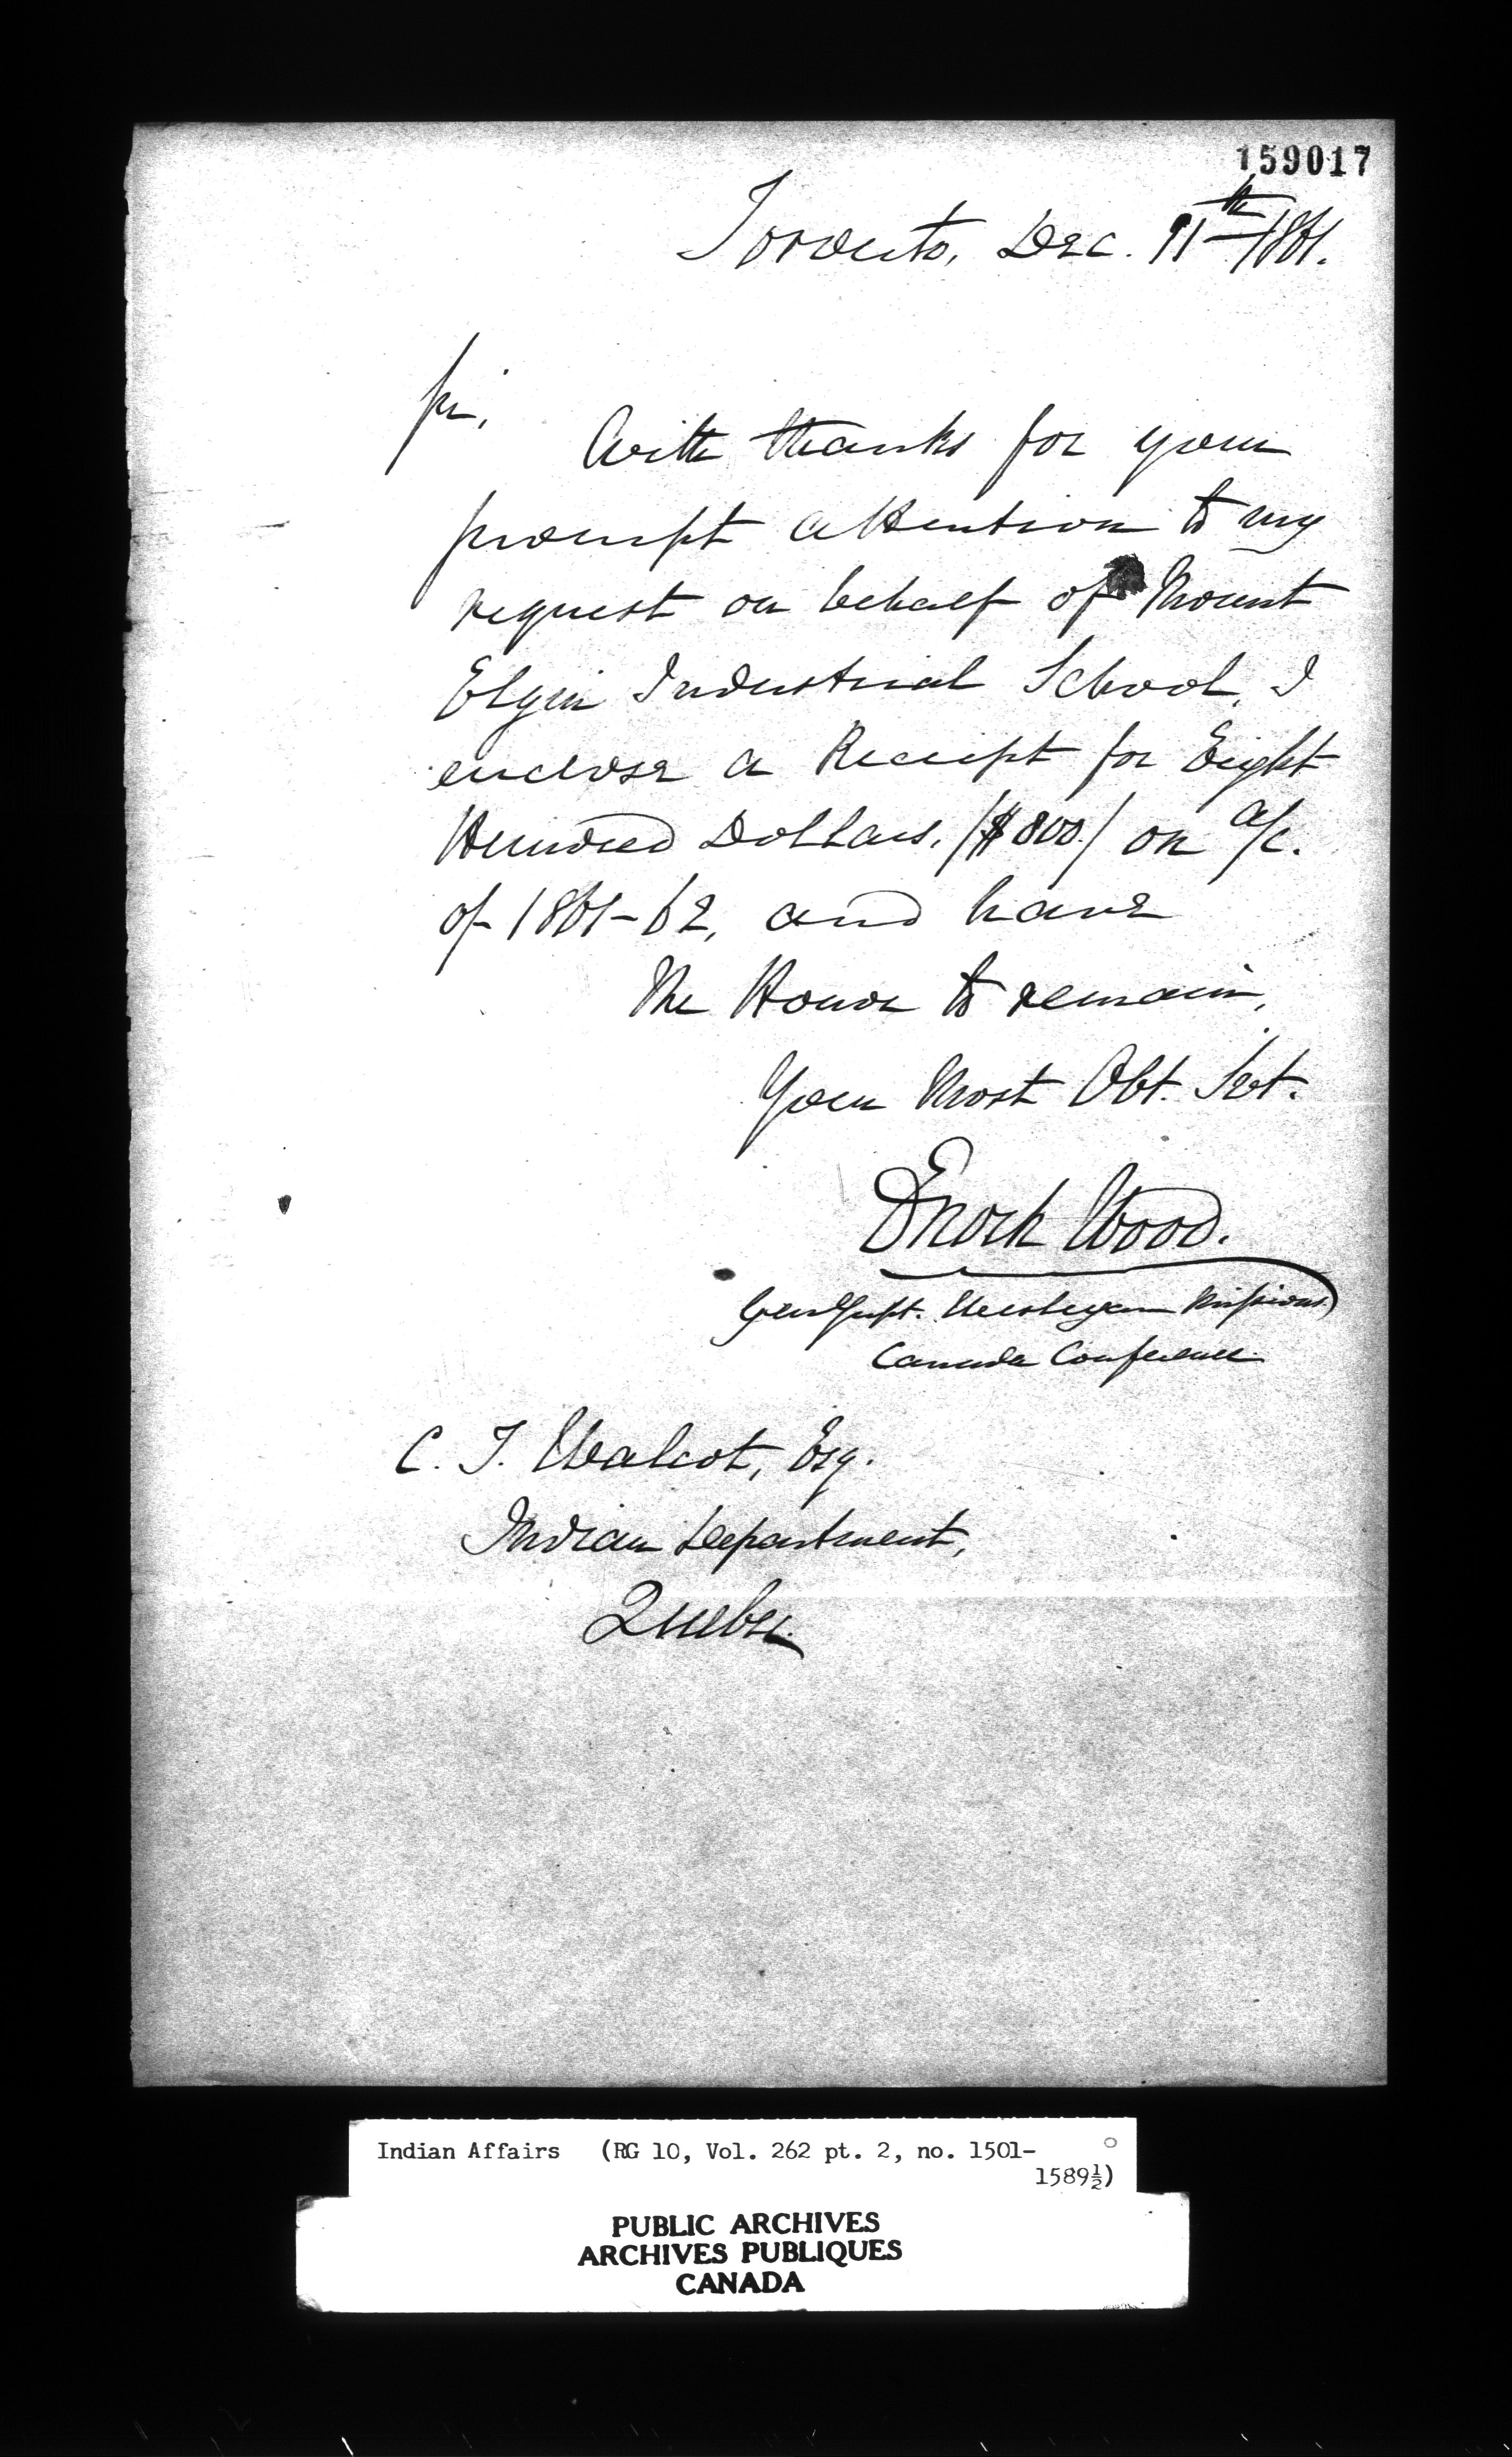 159017
Toronto, Dec. 11th 1861.
Sir,
With thanks for your
prompt attention to my
request on behalf of Mount
Elgin Industrial School, I
enclose a Receipt for Eight
Hundred Dollars, /$800./ on a/c.
of 1861-62, and have
The Honor to remain,
Your Most Obt. Svt.
Enoch Wood.
Gen Supt. Wesleyan Missions
Canada Conference.
C. T. Walcot, Esq.
Indian Department,
Quebec.
Indian Affairs (RG 10, Vol. 262 pt. 2, no. 1501-
1589½)
PUBLIC ARCHIVES
ARCHIVES PUBLIQUES
CANADA